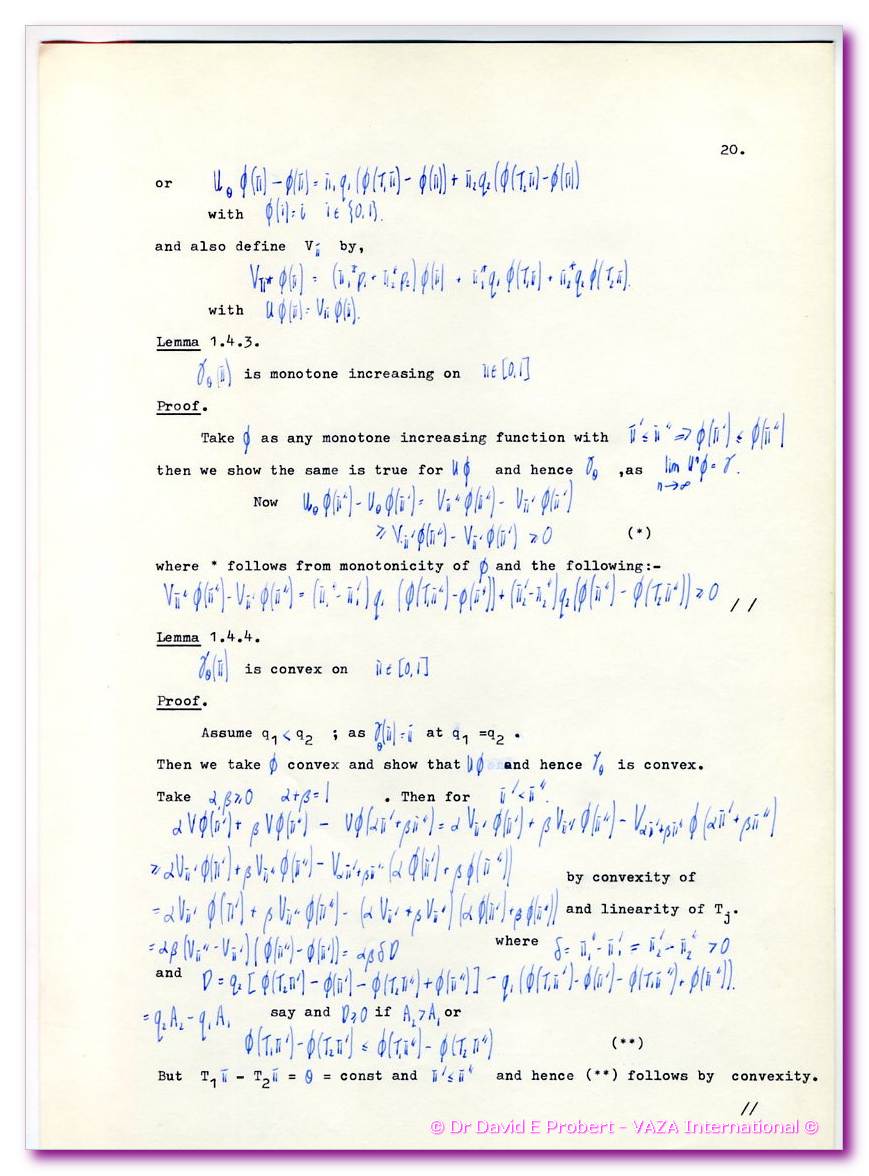 20.
or U_θ ϕ(π) − ϕ(π) = π₁q₁(ϕ(T₁π) − ϕ(π)) + π₂q₂(ϕ(T₂π) − ϕ(π))
with ϕ(i) = i i ∈ {0,1}.
and also define V_π by,
V_π* ϕ(π) = (π₁*p₁ + π₂*p₂)ϕ(π) + π₁*q₁ϕ(T₁π) + π₂*q₂ϕ(T₂π).
with Uϕ(π) = V_πϕ(π).
Lemma 1.4.3.
γ_θ(π) is monotone increasing on π ∈ [0,1]
Proof.
Take ϕ as any monotone increasing function with π′ ≤ π″ ⇒ ϕ(π′) ≤ ϕ(π″)
then we show the same is true for Uϕ and hence γ_θ ,as lim n→∞ Uⁿϕ = γ.
Now U_θϕ(π″) − U_θϕ(π′) = V_π″ϕ(π″) − V_π′ϕ(π′)
≥ V_π′ϕ(π″) − V_π′ϕ(π′) ≥ 0 (*)
where * follows from monotonicity of ϕ and the following:-
V_π″ϕ(π″) − V_π′ϕ(π″) = (π₁″ − π₁′)q₁(ϕ(T₁π″) − ϕ(π″)) + (π₂′ − π₂″)q₂(ϕ(π″) − ϕ(T₂π″)) ≥ 0 //
Lemma 1.4.4.
γ_θ(π) is convex on π ∈ [0,1]
Proof.
Assume q₁ < q₂ ; as γ_θ(π) = π at q₁ =q₂ .
Then we take ϕ convex and show that Uϕ and hence γ_θ is convex.
Take α,β ≥ 0 α+β = 1 . Then for π′ < π″.
αVϕ(π′) + βVϕ(π″) − Vϕ(απ′+βπ″) = αV_π′ϕ(π′) + βV_π″ϕ(π″) − V_απ′+βπ″ϕ(απ′+βπ″)
≥ αV_π′ϕ(π′) + βV_π″ϕ(π″) − V_απ′+βπ″(αϕ(π′) + βϕ(π″)) by convexity of
= αV_π′ϕ(π′) + βV_π″ϕ(π″) − (αV_π′ + βV_π″)(αϕ(π′)+βϕ(π″)) and linearity of Tⱼ.
= αβ(V_π″ − V_π′)(ϕ(π″) − ϕ(π′)) = αβδD where δ = π₁″ − π₁′ = π₂′ − π₂″ > 0
and D = q₂[ϕ(T₂π′) − ϕ(π′) − ϕ(T₂π″) + ϕ(π″)] − q₁(ϕ(T₁π′) − ϕ(π′) − ϕ(T₁π″) + ϕ(π″)).
= q₂A₂ − q₁A₁ say and D ≥ 0 if A₂ > A₁ or
ϕ(T₁π′) − ϕ(T₂π′) ≤ ϕ(T₁π″) − ϕ(T₂π″) (**)
But T₁π − T₂π = θ = const and π′ ≤ π″ and hence (**) follows by convexity.
//
© Dr David E Probert – VAZA International ©